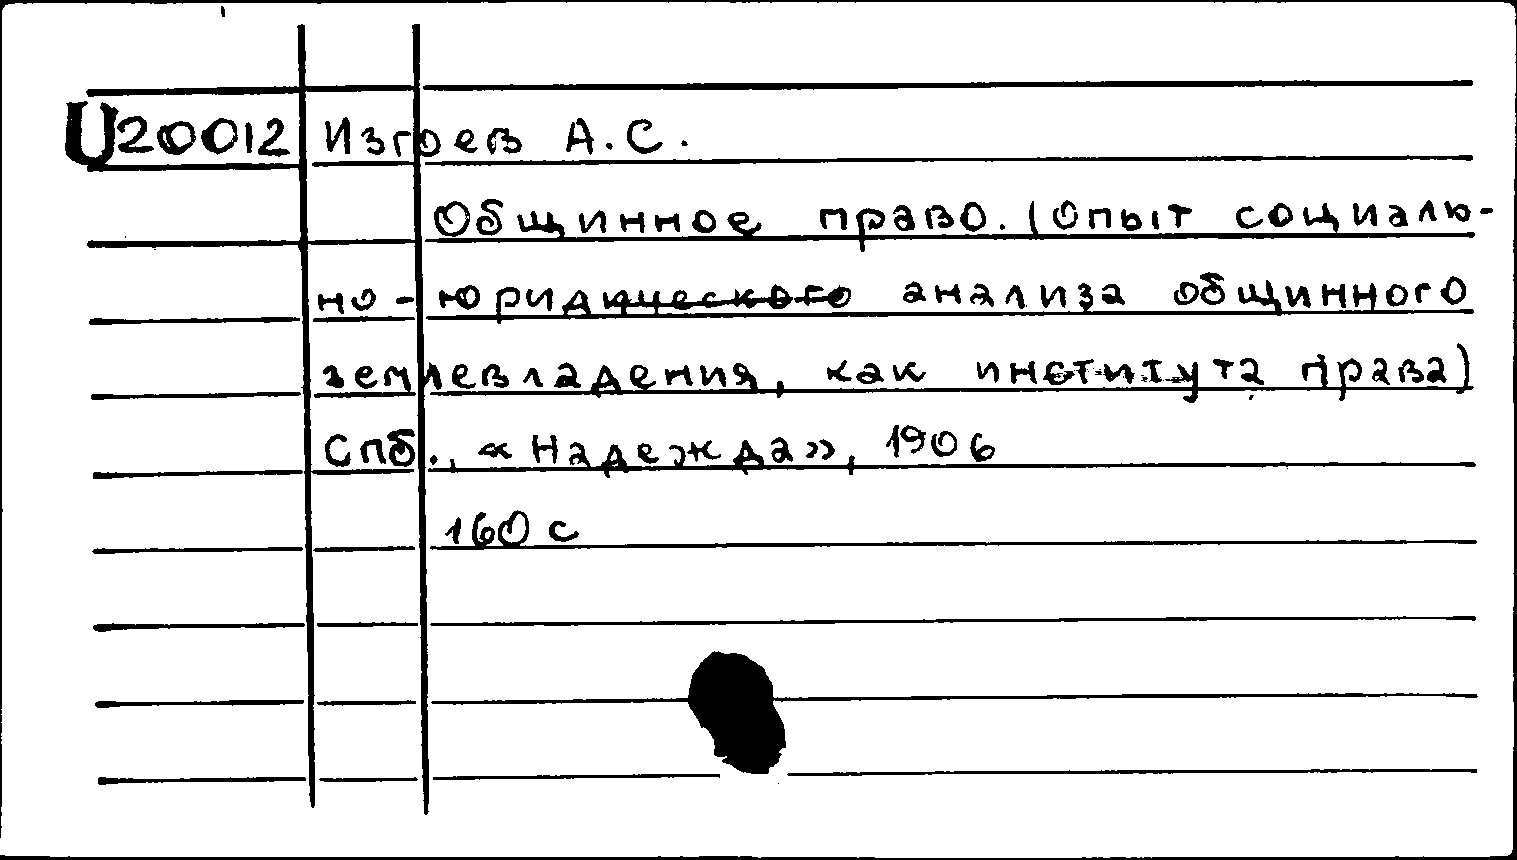 U20012 Изгоев А.С.
Общинное право. (Опыт социаль-
но-юридического анализа общинного
землевладения, как института права)
Спб., «Надежда», 1906
160 с